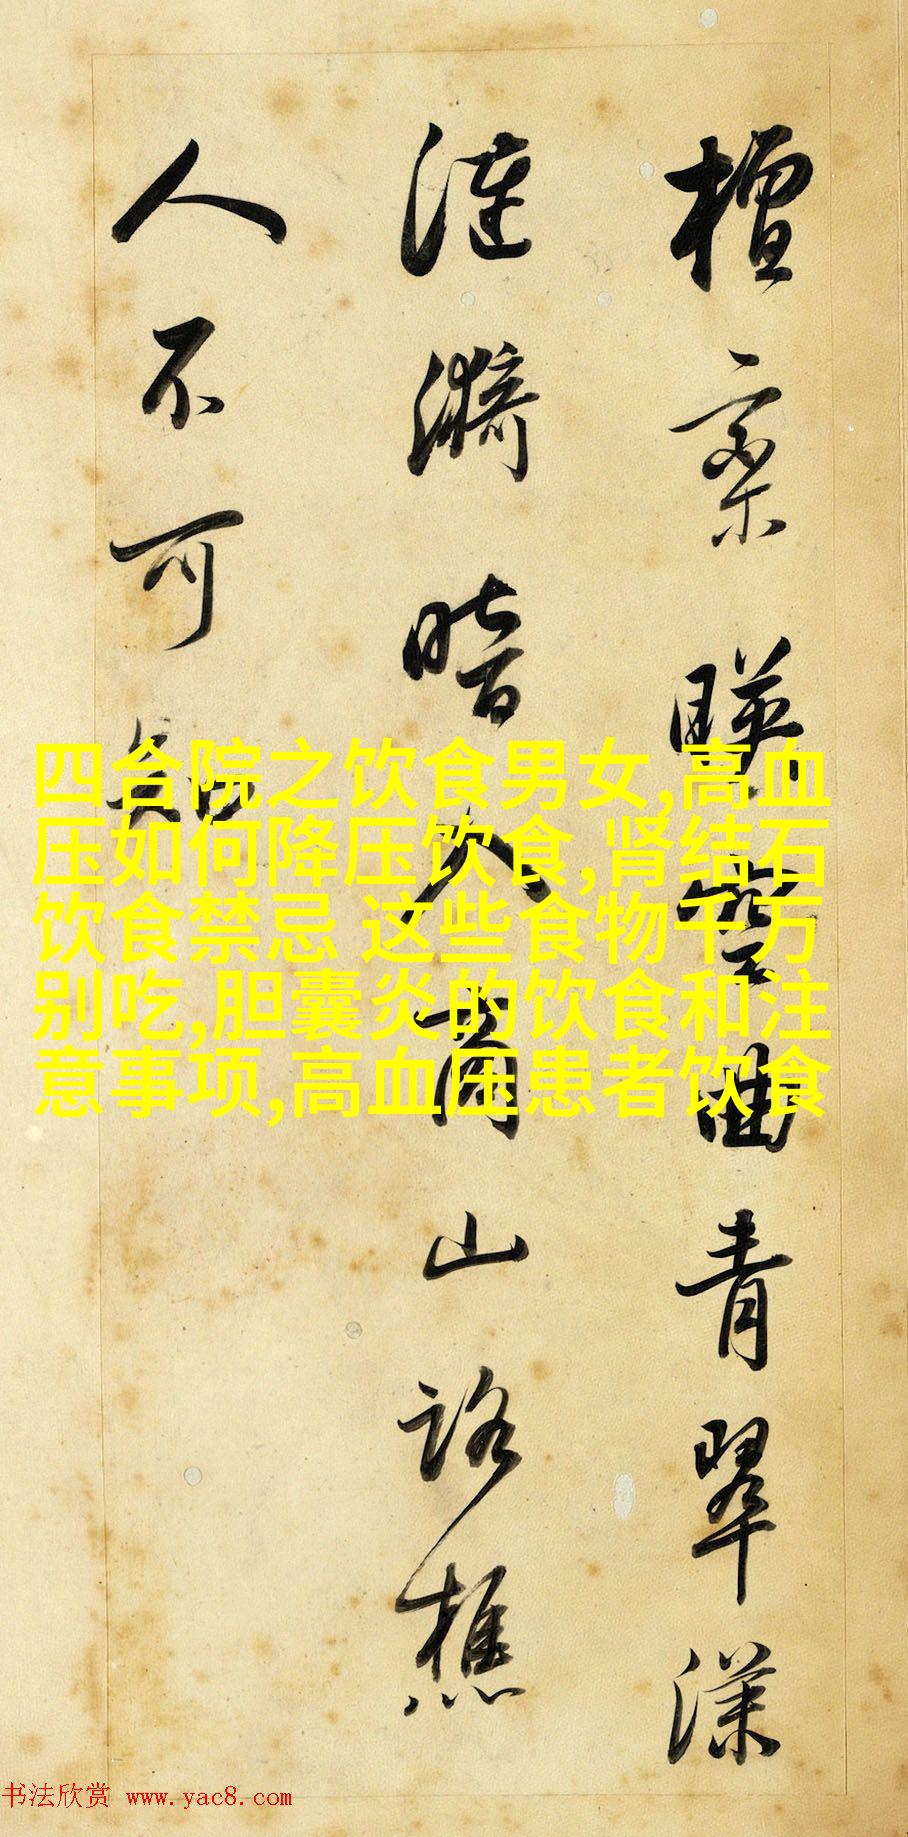 檀欒暎空曲青翠漾
漣漪暗入商山路樵
人不可知
四合院之饮食男女,高血
压如何降压饮食,肾结石
饮食禁忌 这些食物千万
别吃,胆囊炎的饮食和注
意事项,高血压患者饮食
书法欣赏 www.yac8.com